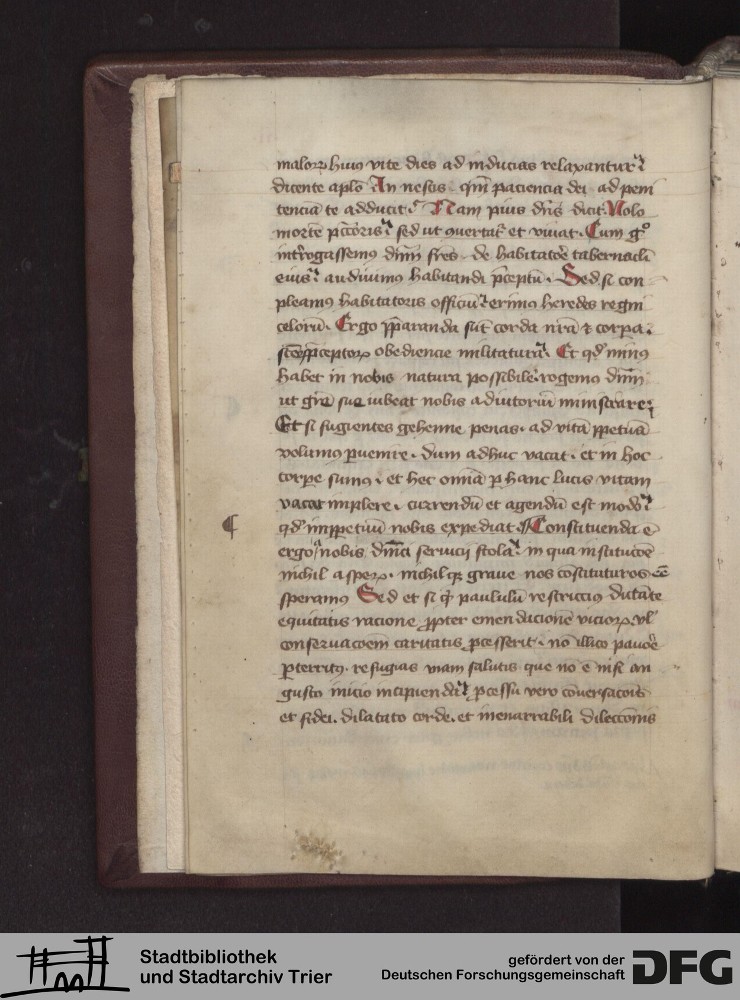 maloꝝ huiꝰ vite dies ad inducias relaxantur
dicente aplo An nescis qm̄ paciencia dei ad peni
tenciā te adducit Nam pius dn̄s dicit Nolo
mortē pctōris sed ut ꝯuertat᷑ et viuat. Cum gͦ
int̄rogassemꝰ dn̄m frēs de habitatoꝛe tabernacl̄i
eius audiuimꝰ habitandi p̄ceptū. Sed si con
pleamꝰ habitatoris officiū erimꝰ heredes regni
celorū. Ergo p̄paranda sūt corda nr̄a ⁊ corpa.
scē p̄ceptoꝝ obediencie militatura Et qd̓ minꝰ
habet in nobis natura possibile rogemꝰ dn̄m
ut grē sue iubeat nobis adiutoriū ministrare
Et si fugientes gehenne penas ad vitā ꝑpetuā
volumꝰ ꝑuenire. dum adhuc vacat. et in hoc
corpe sumꝰ. et hec omīa ꝑ hanc lucis vitam
vacat implere. currendū et agendū est modo
qd̓ inꝑpetuū nobis expediat Constituenda e
ergo nobis dn̄ici seruicii scola in qua institucōe
nichil aspeꝝ. nichilqꝫ graue nos cōstituturos ēē
speramꝰ Sed et si qͥ paululū restrictiꝰ dictāte
equitatis racione ꝓpter emendacionē vicioꝝ vl̓
conseruacoēm caritatis ꝓcesserit. nō illico pauoꝛe
ꝑterritꝰ. refugias viam salutis que nō ē nisi an
gusto inicio incipienda ꝓcessu vero cōuersacōis
et fidei. dilatato corde. et inenarrabili dileccōnis
Stadtbibliothek
und Stadtarchiv Trier
gefördert von der
Deutschen Forschungsgemeinschaft
DFG